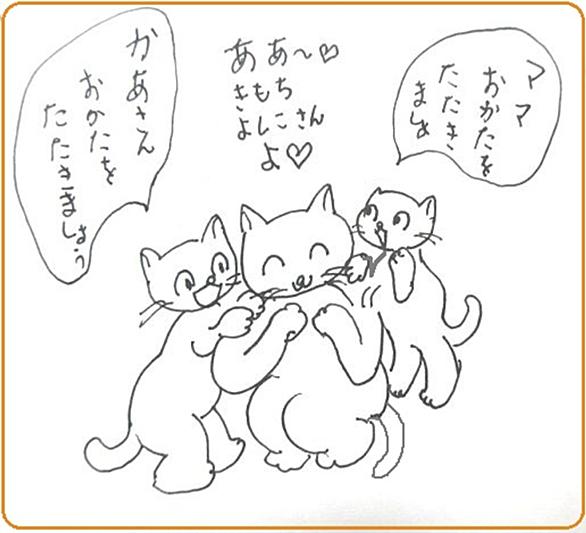 ママ
おかたを
たたき
ましょ
ああ～♡
きもち
よしこさん
よ♡
かあさん
おかたを
たたきましょう